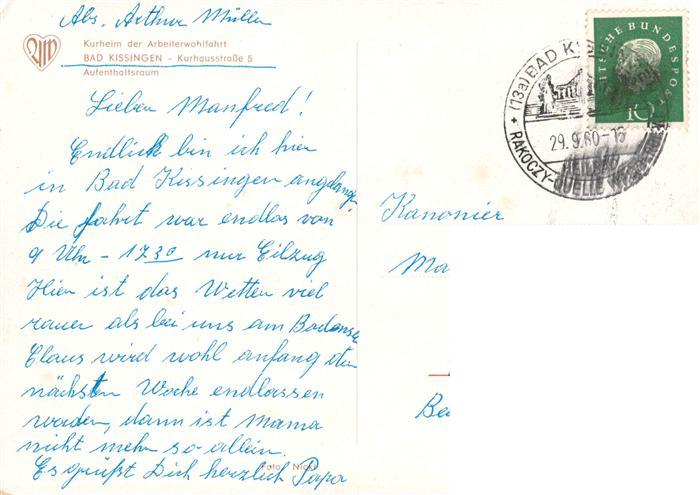 Abs. Arthur Müller
Kurheim der Arbeiterwohlfahrt
BAD KISSINGEN - Kurhausstraße 5
Aufenthaltsraum
Lieber Manfred!
Endlich bin ich hier
in Bad Kissingen angelangt.
Die Fahrt war endlos von
9 Uhr - 17 30 nur Eilzug
Hier ist das Wetter viel
rauer als bei uns am Bodensee
Claus wird wohl anfang der
nächsten Woche endlassen
werden, dann ist Mama
nicht mehr so allein.
Es grüßt Dich herzlich Papa
Foto
DEUTSCHE BUNDESPOST
10
(13a) BAD
29.9.60-16
HEILBAD
RAKOCZY-QUELLE
Kanonier
Ma